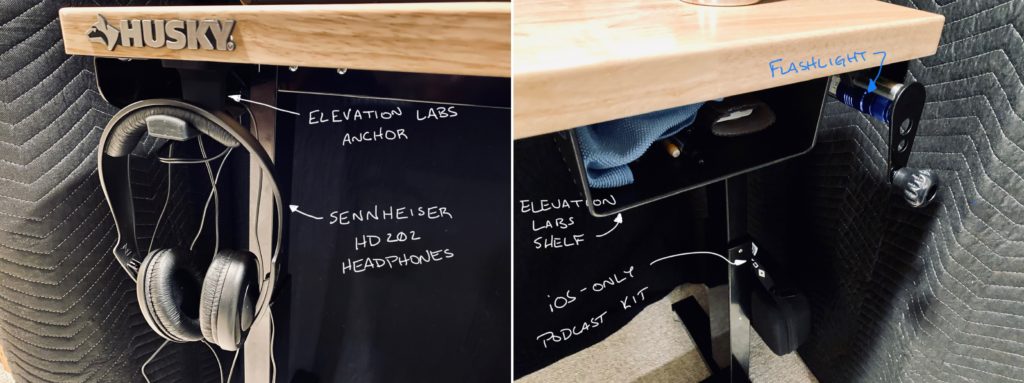 HUSKY
ELEVATION LABS
ANCHOR
SENNHEISER
HD 202
HEADPHONES
FLASHLIGHT
ELEVATION
LABS
SHELF
iOS-ONLY
PODCAST KIT